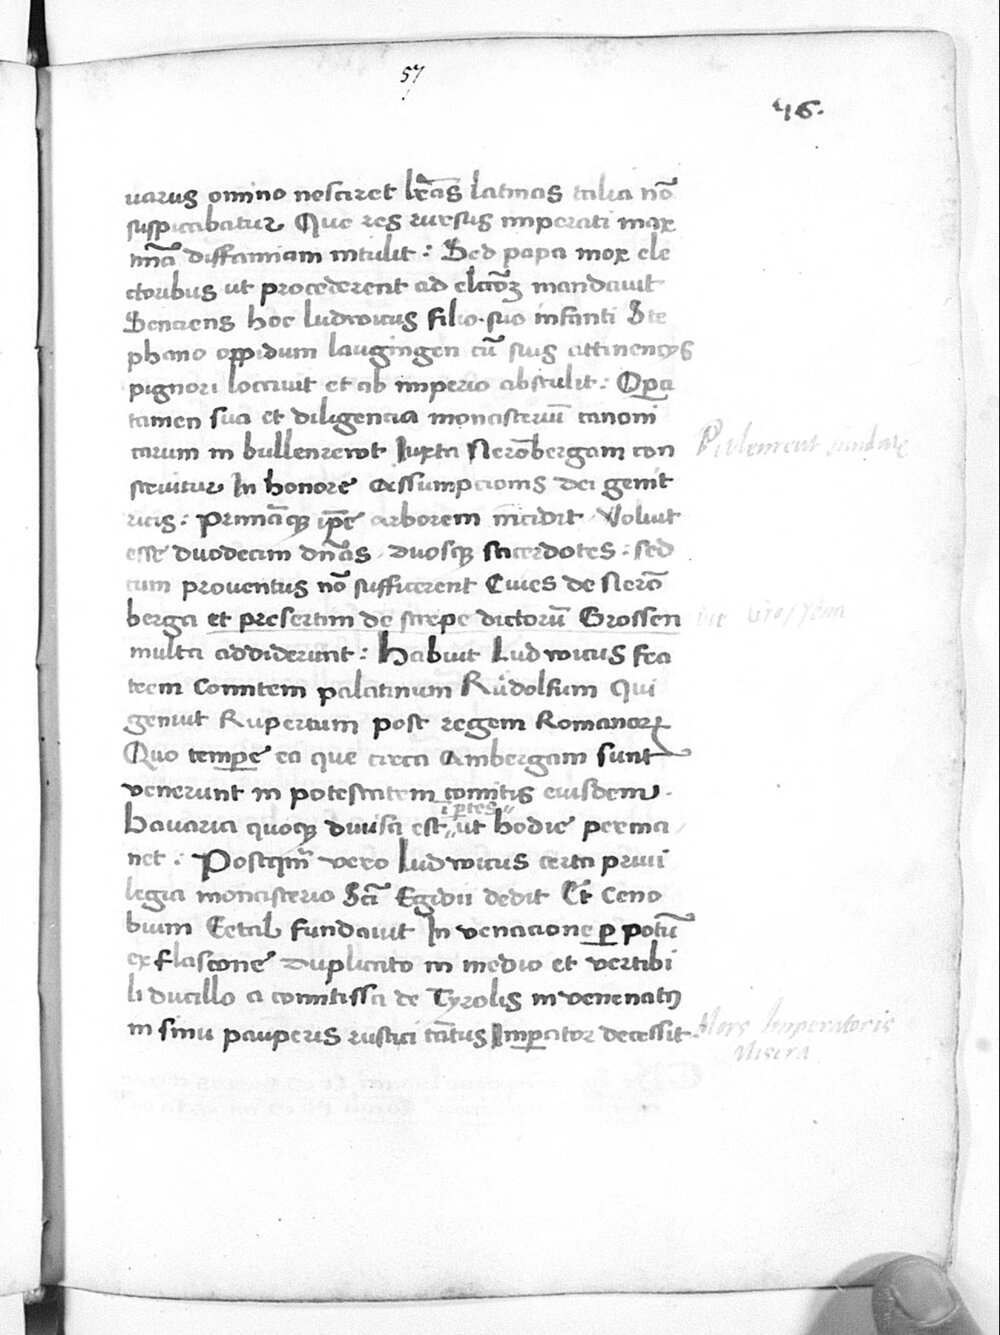 57
46.
uarus omino nesciret lr̃as latinas talia nō
suspicabatur Que res rursus imperati max
imā diffamiam intulit : Sed papa mox ele
ctoribus ut procederent ad elctōꝫ mandauit
Senciens hoc ludwicus filio suo infanti Ste
phano oppidum laugingen cū suis attinencijs
pignori locauit et ab imperio abstulit : Opa
tamen sua et diligencia monasteriū canoni
carum in bullenrewt Iuxta Nerōbergam con
struitur In honore Assumpcionis dei genit
ricis : Primāqꝫ ip̄e arborem incidit Voluit
esse duodecim dñas duosqꝫ sacerdotes : sed
cum prouentus nō sufficerent Ciues de Nerō
berga et presertim de stirpe dictorū Grossen
die Grossen
multa addiderunt : Habuit Ludwicus fra
trem Comitem palatinum Rudolfum Qui
genuit Rupertum post regem Romanoꝝ
Quo tempe ea que circa Ambergam sunt
venerunt in potestatem comitis eiusdem .
i ptes
bauaria quoqꝫ diuisa est ut hodie perma
net : Postqm̄ vero Ludwicus certa priui
legia monasterio Sci Egidii dedit Et Ceno
bium Eetal fundauit In venacione p potū
ex flascone duplicato in medio et vertibi
li ducillo a comitissa de Tyrolis invenenatus
in sinu pauperis rustici tātus Impator decessit
Mors Imperatoris
Misera